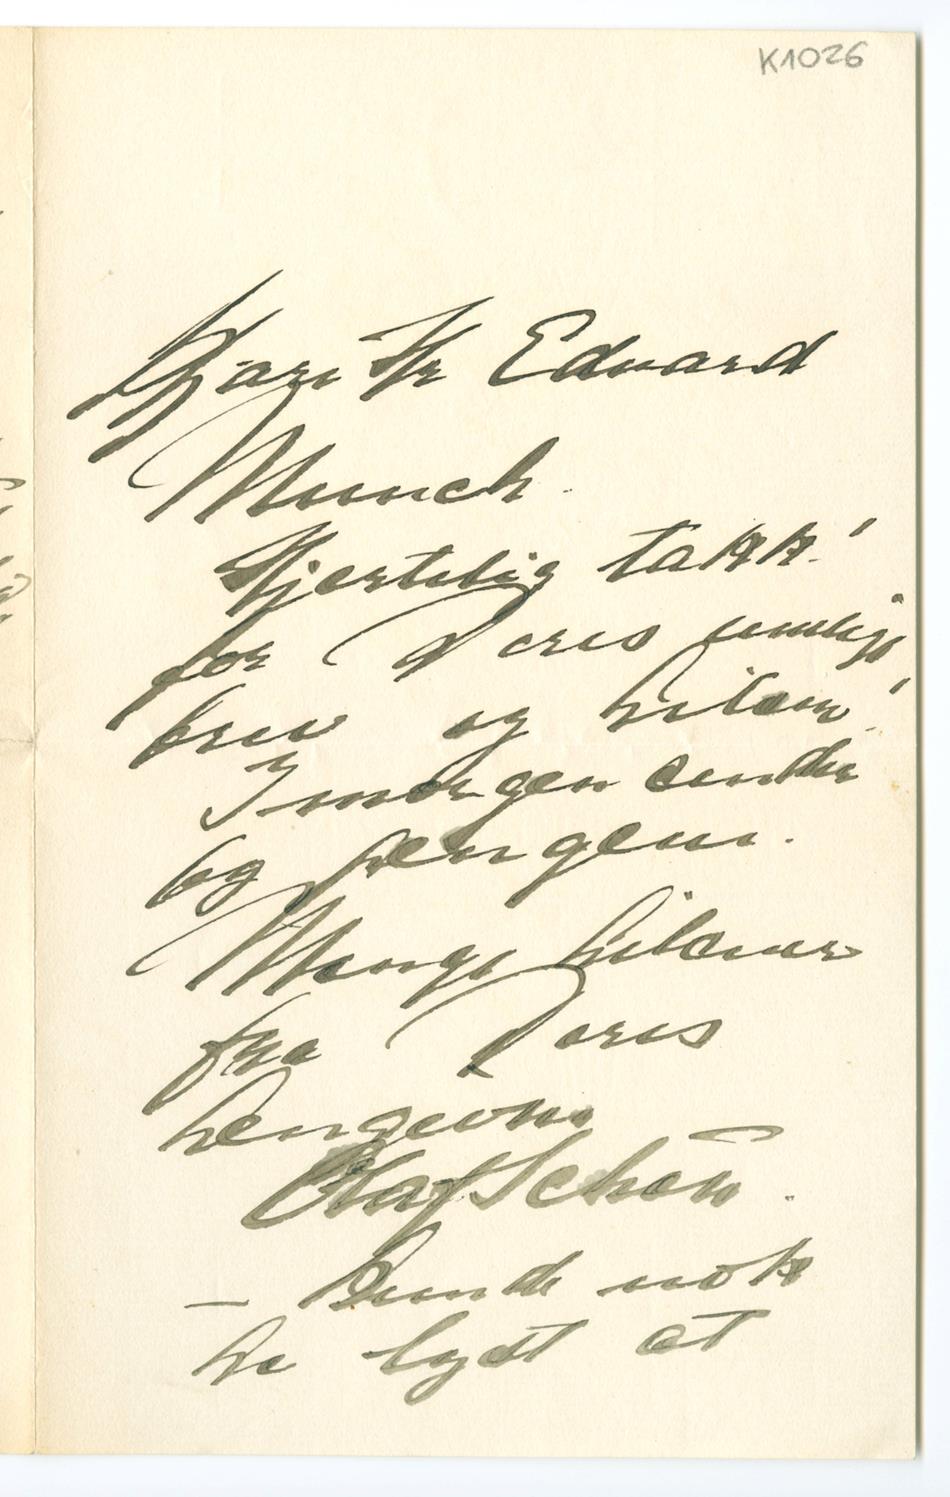 K1026
Kjære Hr Edvard
Munch.
Hjertelig takk!
for Deres venlige
brev og hilsen!
I morgen sender
jeg pengene.
Mange hilsener
fra Deres
hengivne
Olaf Schou.
– Kunde nok
ha lyst at